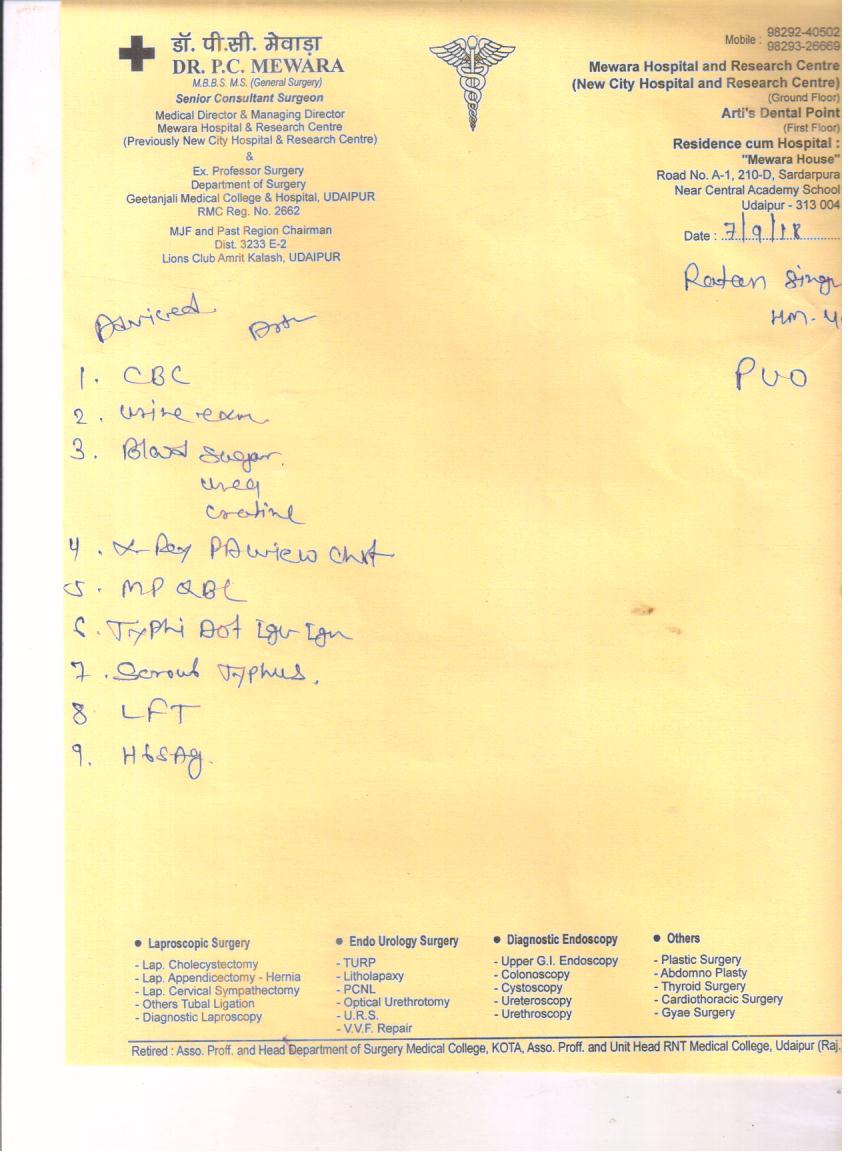 डॉ. पी.सी. मेवाड़ा
DR. P.C. MEWARA
M.B.B.S. M.S. (General Surgery)
Senior Consultant Surgeon
Medical Director & Managing Director
Mewara Hospital & Research Centre
(Previously New City Hospital & Research Centre)
&
Ex. Professor Surgery
Department of Surgery
Geetanjali Medical College & Hospital, UDAIPUR
RMC Reg. No. 2662
MJF and Past Region Chairman
Dist. 3233 E-2
Lions Club Amrit Kalash, UDAIPUR
Mobile : 98292-40502
98293-26669
Mewara Hospital and Research Centre
(New City Hospital and Research Centre)
(Ground Floor)
Arti's Dental Point
(First Floor)
Residence cum Hospital :
"Mewara House"
Road No. A-1, 210-D, Sardarpura
Near Central Academy School
Udaipur - 313 004
Date : 7/9/18
Ratan Singh
HM-4
PUO
Adviced
1. CBC
2. urine exam
3. Blood Sugar.
urea
creatine
4. X-Ray PA view Chest
5. MP QBC
6. Typhi Dot IgG IgM
7. Scrub Typhus.
8 LFT
9. HbSAg.
• Laproscopic Surgery
- Lap. Cholecystectomy
- Lap. Appendicectomy - Hernia
- Lap. Cervical Sympathectomy
- Others Tubal Ligation
- Diagnostic Laproscopy
• Endo Urology Surgery
- TURP
- Litholapaxy
- PCNL
- Optical Urethrotomy
- U.R.S.
- V.V.F. Repair
• Diagnostic Endoscopy
- Upper G.I. Endoscopy
- Colonoscopy
- Cystoscopy
- Ureteroscopy
- Urethroscopy
• Others
- Plastic Surgery
- Abdomno Plasty
- Thyroid Surgery
- Cardiothoracic Surgery
- Gyae Surgery
Retired : Asso. Proff. and Head Department of Surgery Medical College, KOTA, Asso. Proff. and Unit Head RNT Medical College, Udaipur (Raj.